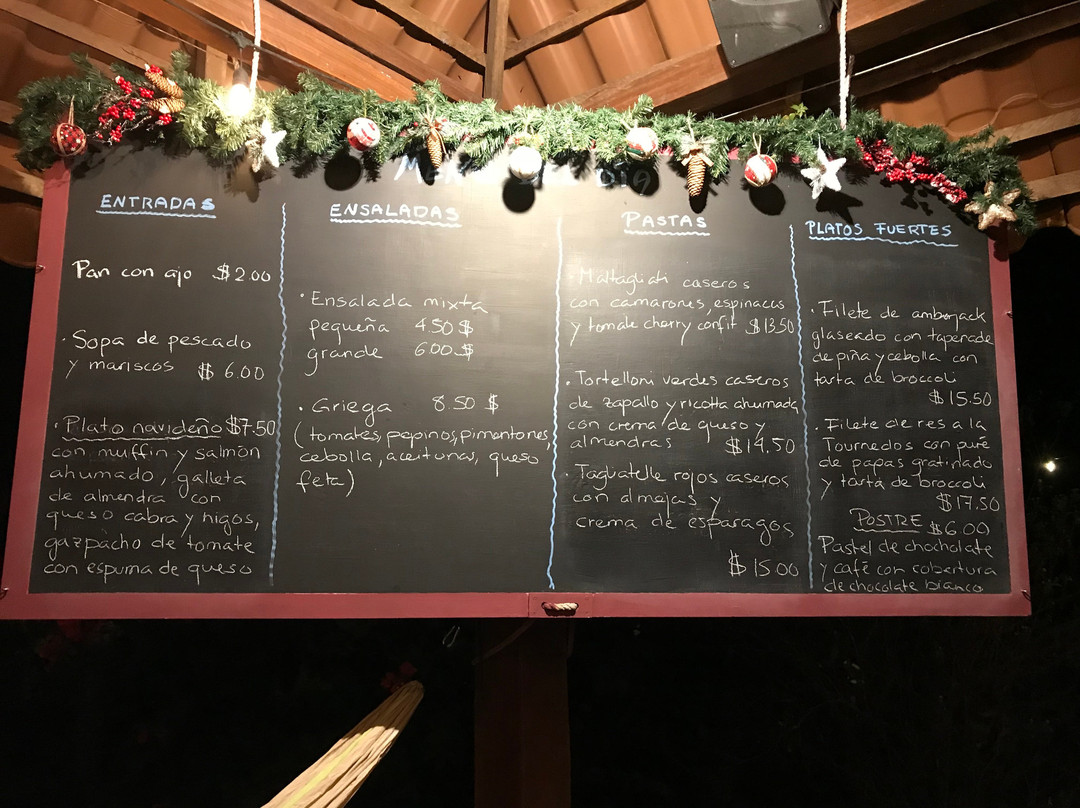 MENÚ DEL DIA
ENTRADAS
Pan con ajo $2.00
· Sopa de pescado
y mariscos $6.00
· Plato navideño $7.50
con muffin y salmòn
ahumado, galleta
de almendra con
queso cabra y higos,
gazpacho de tomate
con espuma de queso
ENSALADAS
· Ensalada mixta
pequeña 4.50 $
grande 6.00 $
· Griega 8.50 $
(tomates, pepinos, pimentones,
cebolla, aceitunas, queso
feta)
PASTAS
· Maltagliati caseros
con camarones, espinacas
y tomate cherry confit $13.50
· Tortelloni verdes caseros
de zapallo y ricotta ahumada
con crema de queso y
almendras $14.50
· Tagliatelle rojos caseros
con almejas y
crema de esparagos
$15.00
PLATOS FUERTES
· Filete de amberjack
glaseado con tapenade
de piña y cebolla con
tarta de broccoli
$15.50
· Filete de res a la
Tournedos con puré
de papas gratinado
y tarta de broccoli
$17.50
POSTRE $6.00
Pastel de chocholate
y café con cobertura
de chocolate bianco